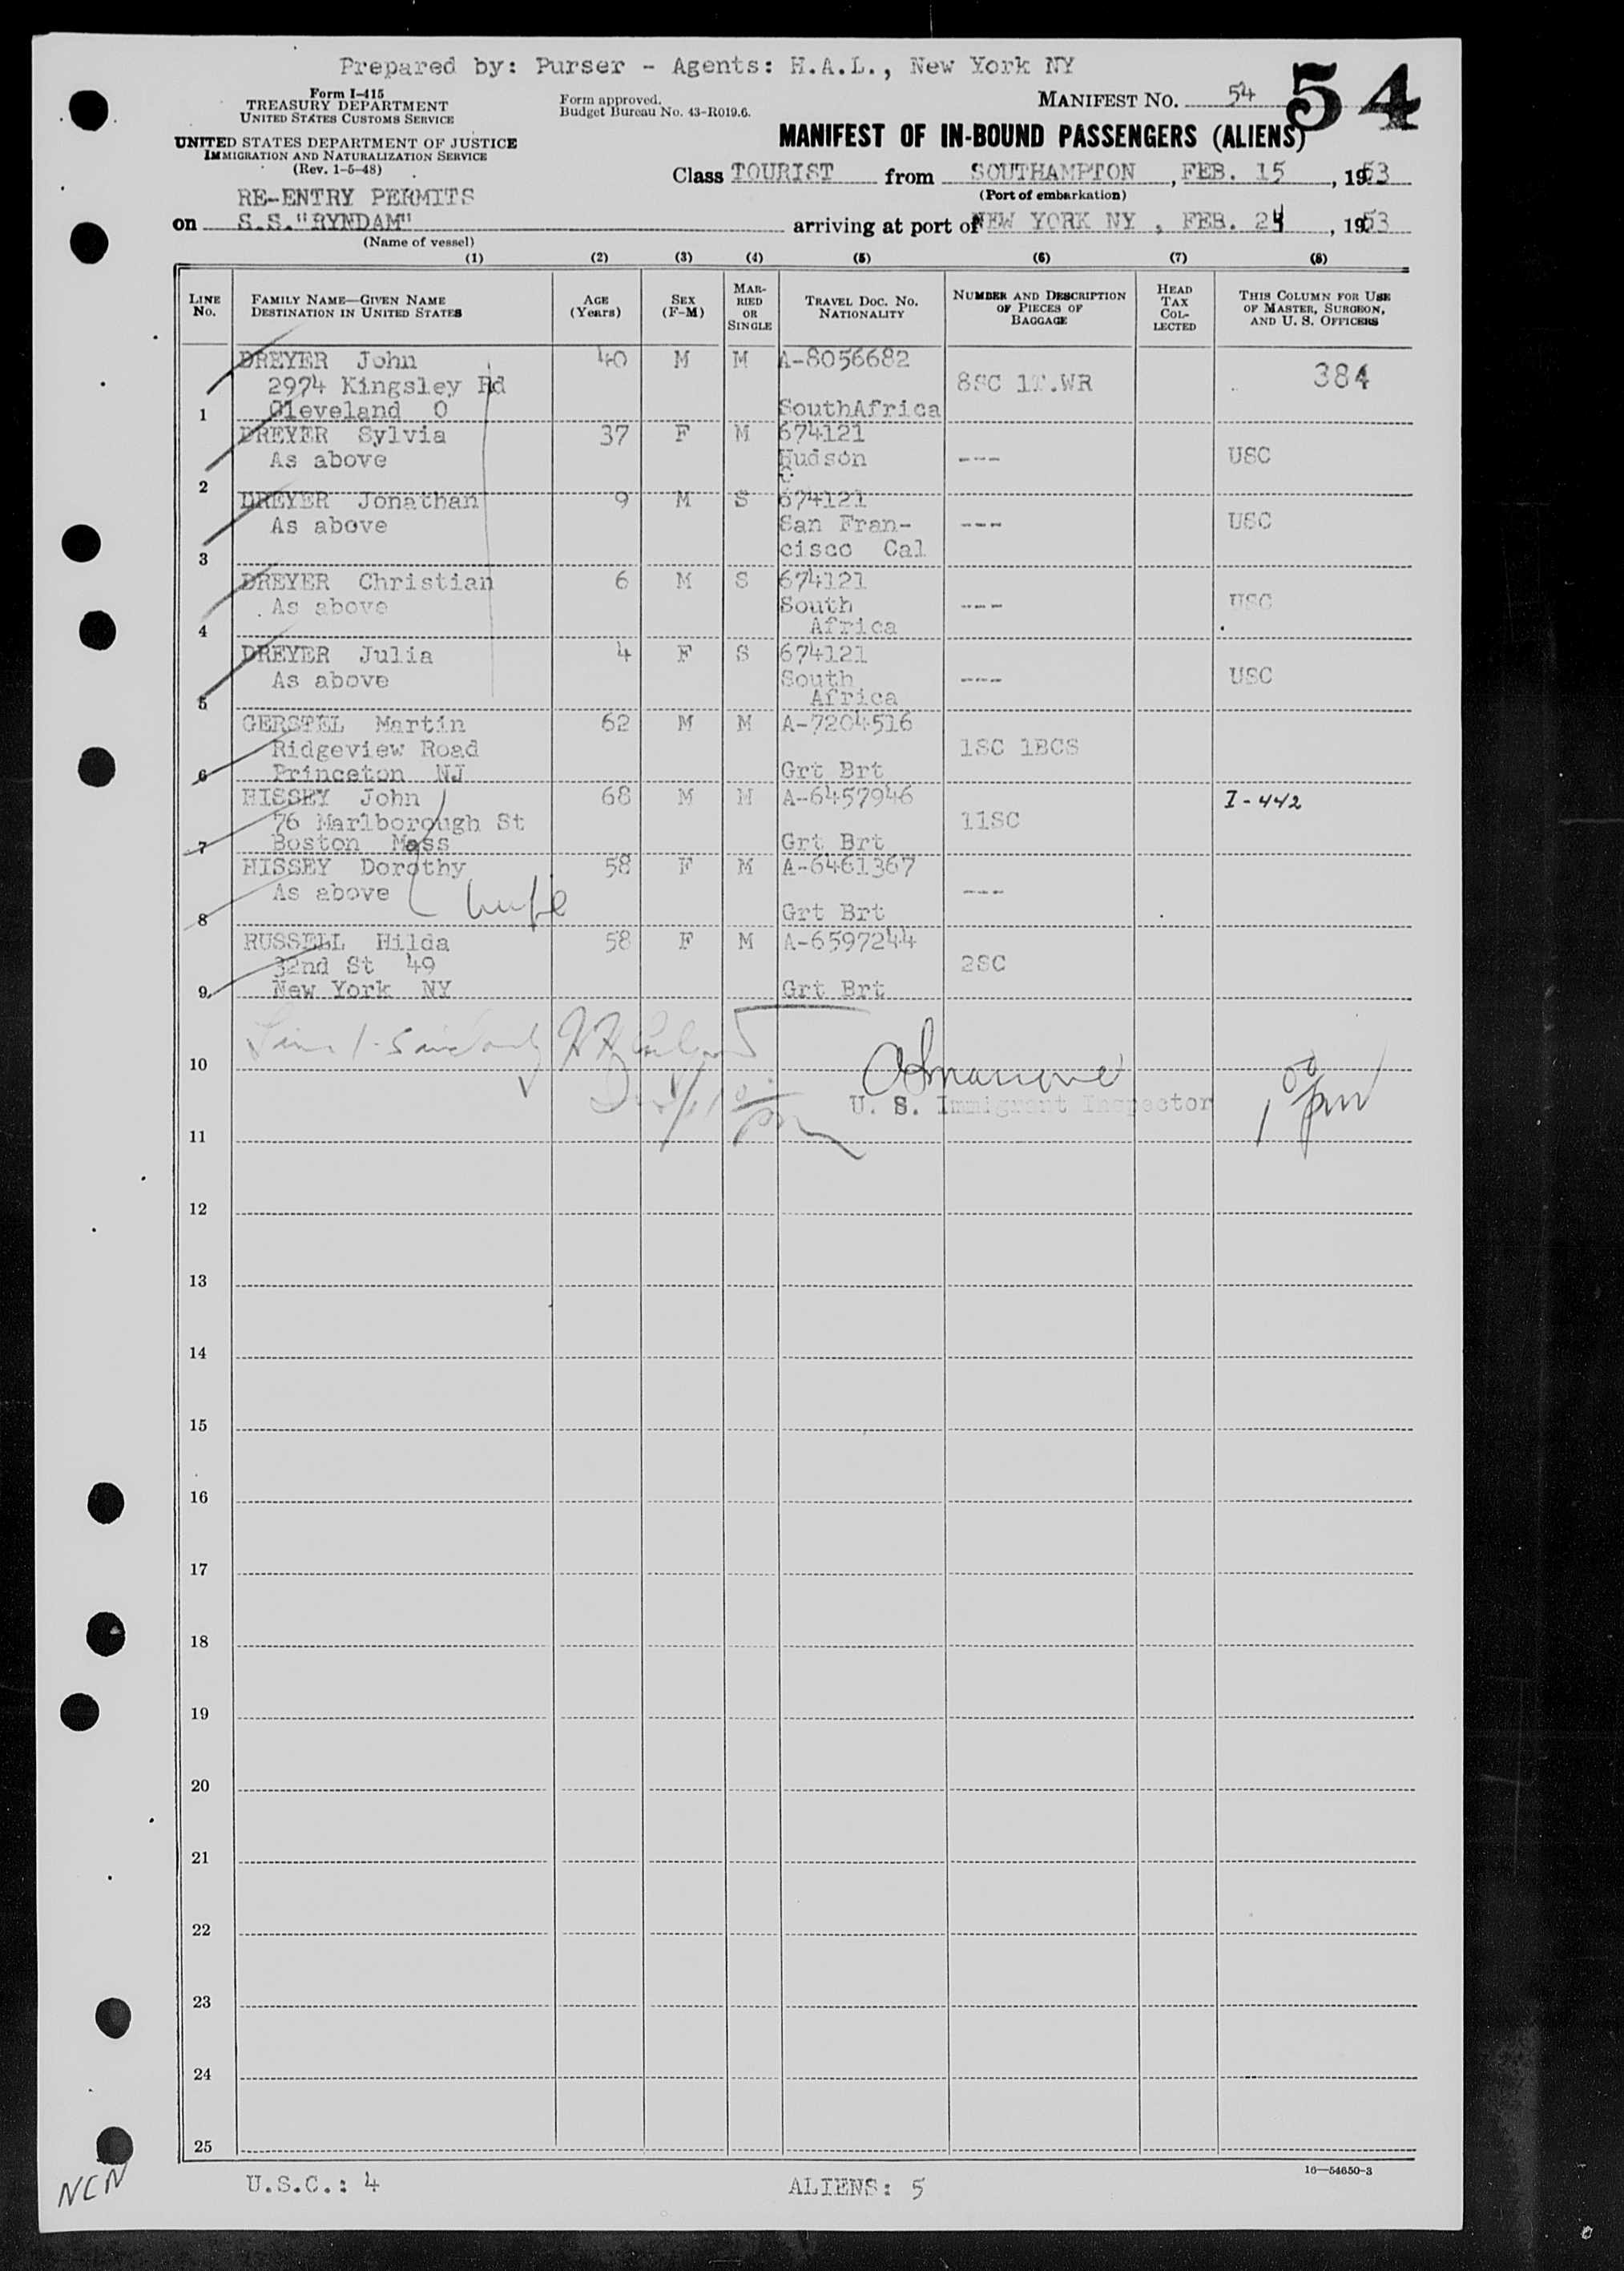 Prepared by: Purser - Agents: H.A.L., New York NY
Form I-415
TREASURY DEPARTMENT
UNITED STATES CUSTOMS SERVICE
Form approved.
Budget Bureau No. 43-R019.6.
MANIFEST NO. 54
54
UNITED STATES DEPARTMENT OF JUSTICE
IMMIGRATION AND NATURALIZATION SERVICE
(Rev. 1-5-48)
MANIFEST OF IN-BOUND PASSENGERS (ALIENS)
Class TOURIST from SOUTHAMPTON, FEB. 15, 1953
(Port of embarkation)
RE-ENTRY PERMITS
on S.S."RYNDAM" arriving at port of NEW YORK NY, FEB. 24, 1953
(Name of vessel)
(1) (2) (3) (4) (5) (6) (7) (8)
LINE NO.
FAMILY NAME—GIVEN NAME
DESTINATION IN UNITED STATES
AGE (Years)
SEX (F-M)
MARRIED OR SINGLE
TRAVEL DOC. NO.
NATIONALITY
NUMBER AND DESCRIPTION OF PIECES OF BAGGAGE
HEAD TAX COLLECTED
THIS COLUMN FOR USE OF MASTER, SURGEON, AND U. S. OFFICERS
DREYER John 40 M M A-8056682
2974 Kingsley Rd 8SC 1T.WR 384
1 Cleveland O SouthAfrica
DREYER Sylvia 37 F M 674121
As above Hudson --- USC
2
DREYER Jonathan 9 M S 674121
As above San Fran- --- USC
3 cisco Cal
DREYER Christian 6 M S 674121
As above South --- USC
4 Africa
DREYER Julia 4 F S 674121
As above South --- USC
5 Africa
GERSTEL Martin 62 M M A-7204516
Ridgeview Road 1SC 1BCS
6 Princeton NJ Grt Brt
HISSEY John 68 M M A-6457946 I-442
76 Marlborough St 11SC
7 Boston Mass Grt Brt
HISSEY Dorothy 58 F M A-6461367
As above wife ---
8 Grt Brt
RUSSELL Hilda 58 F M A-6597244
32nd St 49 2SC
9 New York NY Grt Brt
10
U. S. Immigrant Inspector 1 00 pm
11
12
13
14
15
16
17
18
19
20
21
22
23
24
25
16—54650-3
NCN
U.S.C.: 4 ALIENS: 5